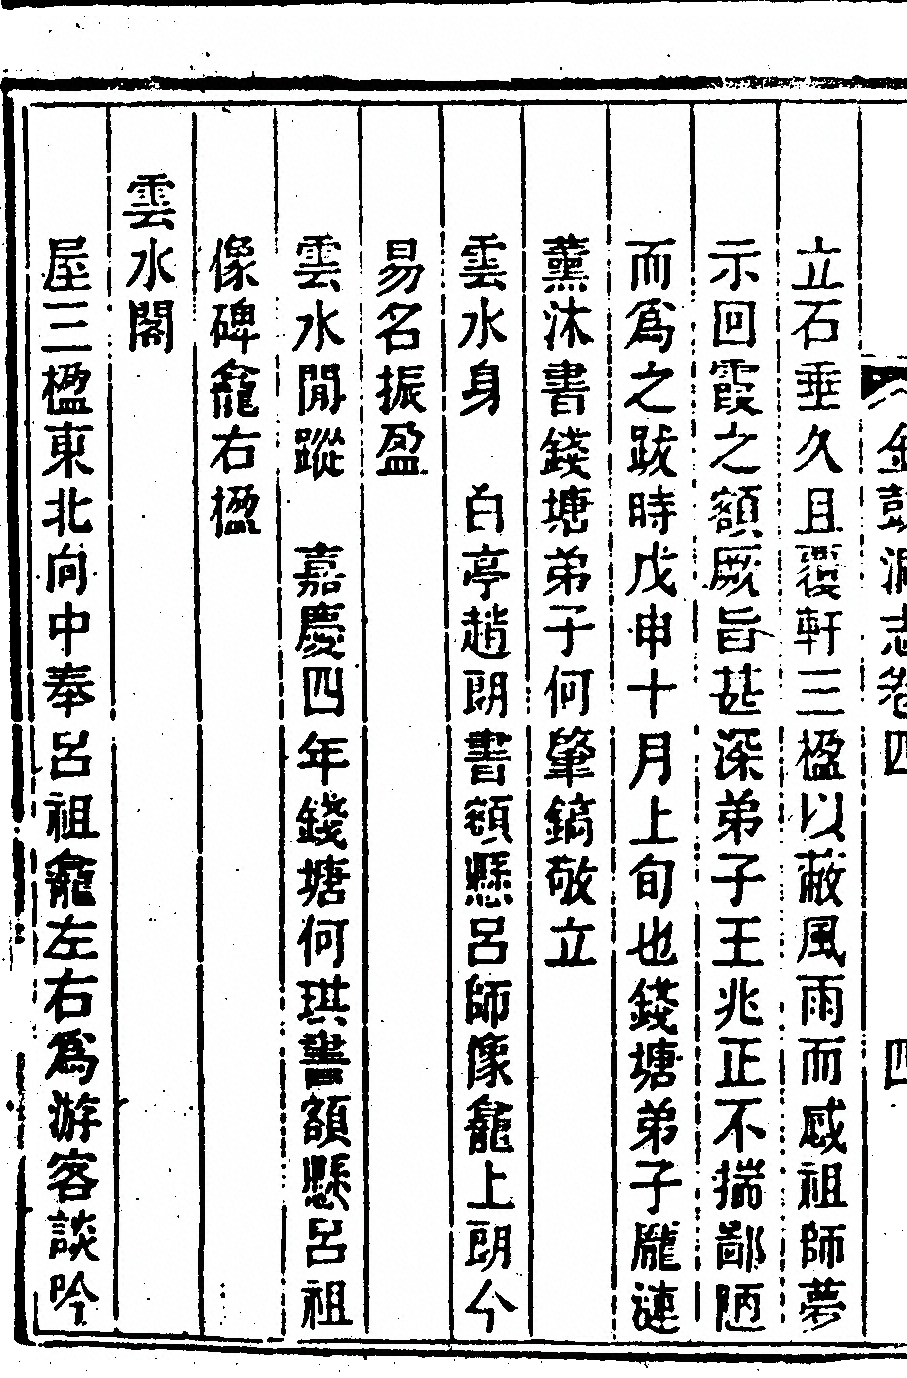 金鼓洞志卷四 四
立石垂久且覆軒三楹以蔽風雨而感祖師夢
示回霞之額厥旨甚深弟子王兆正不揣鄙陋
而爲之跋時戊申十月上旬也錢塘弟子龎漣
薰沐書錢塘弟子何肇鎬敬立
雲水身 白亭趙朗書額懸呂師像龕上朗今
易名振盈
雲水閒蹤 嘉慶四年錢塘何琪書額懸呂祖
像碑龕右楹
雲水閣
屋三楹東北向中奉呂祖龕左右爲游客談吟